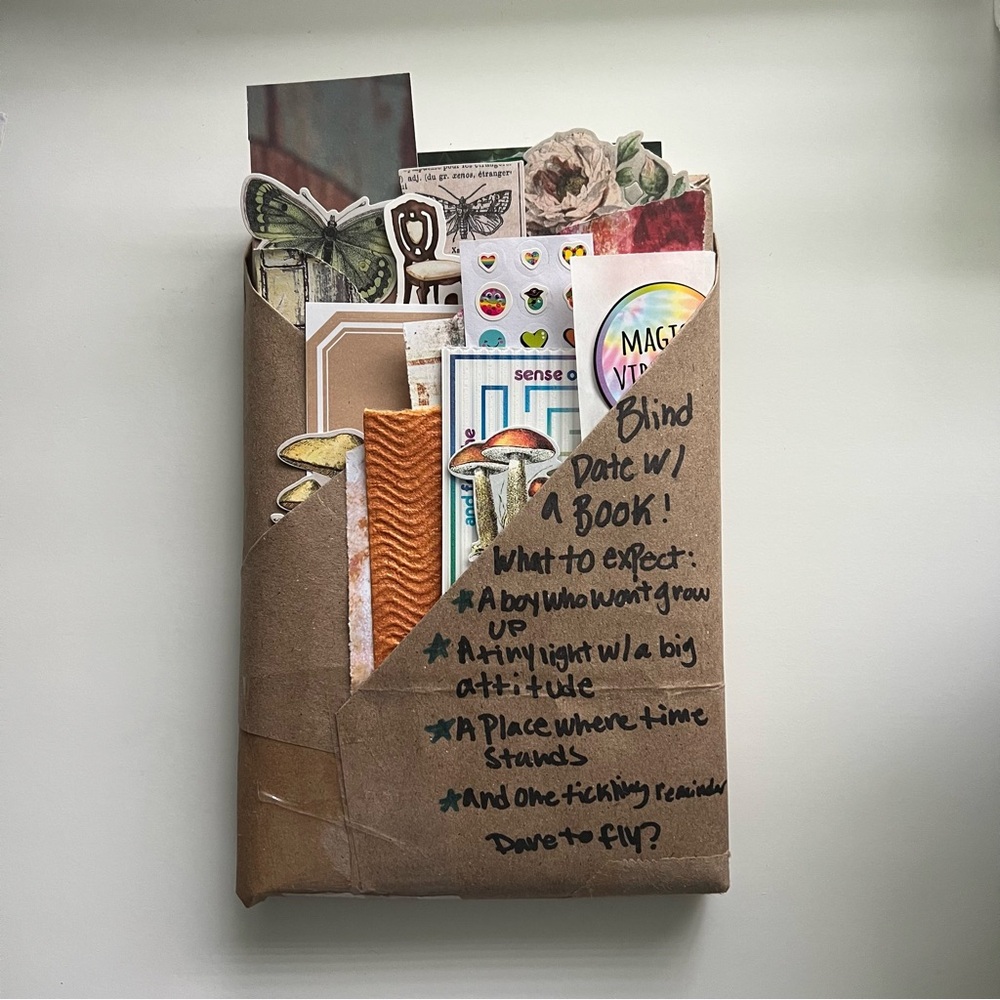 adj. (du gr. xenos, étranger
Xa
sense o
and f
MAGIC
Blind
Date w/
a Book!
What to expect:
A boy who wont grow
up
A tiny light w/ a big
attitude
A Place where time
Stands
and one tickling reminder
Dare to fly?